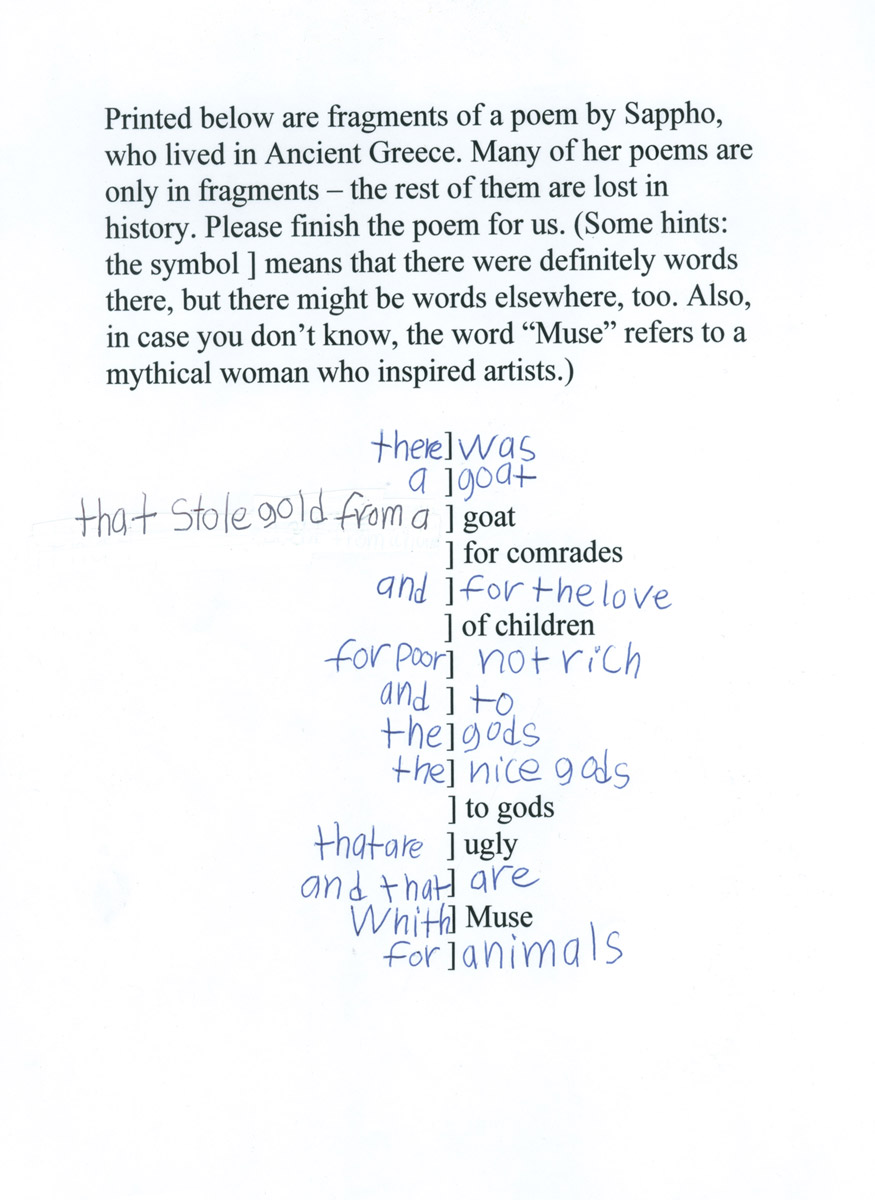 Printed below are fragments of a poem by Sappho,
who lived in Ancient Greece. Many of her poems are
only in fragments – the rest of them are lost in
history. Please finish the poem for us. (Some hints:
the symbol ] means that there were definitely words
there, but there might be words elsewhere, too. Also,
in case you don’t know, the word “Muse” refers to a
mythical woman who inspired artists.)
there] was
a ] goat
that Stole gold from a ] goat
] for comrades
and ] for the love
] of children
for poor] not rich
and ] to
the] gods
the] nice gods
] to gods
that are ] ugly
and that] are
Whith] Muse
for ] animals